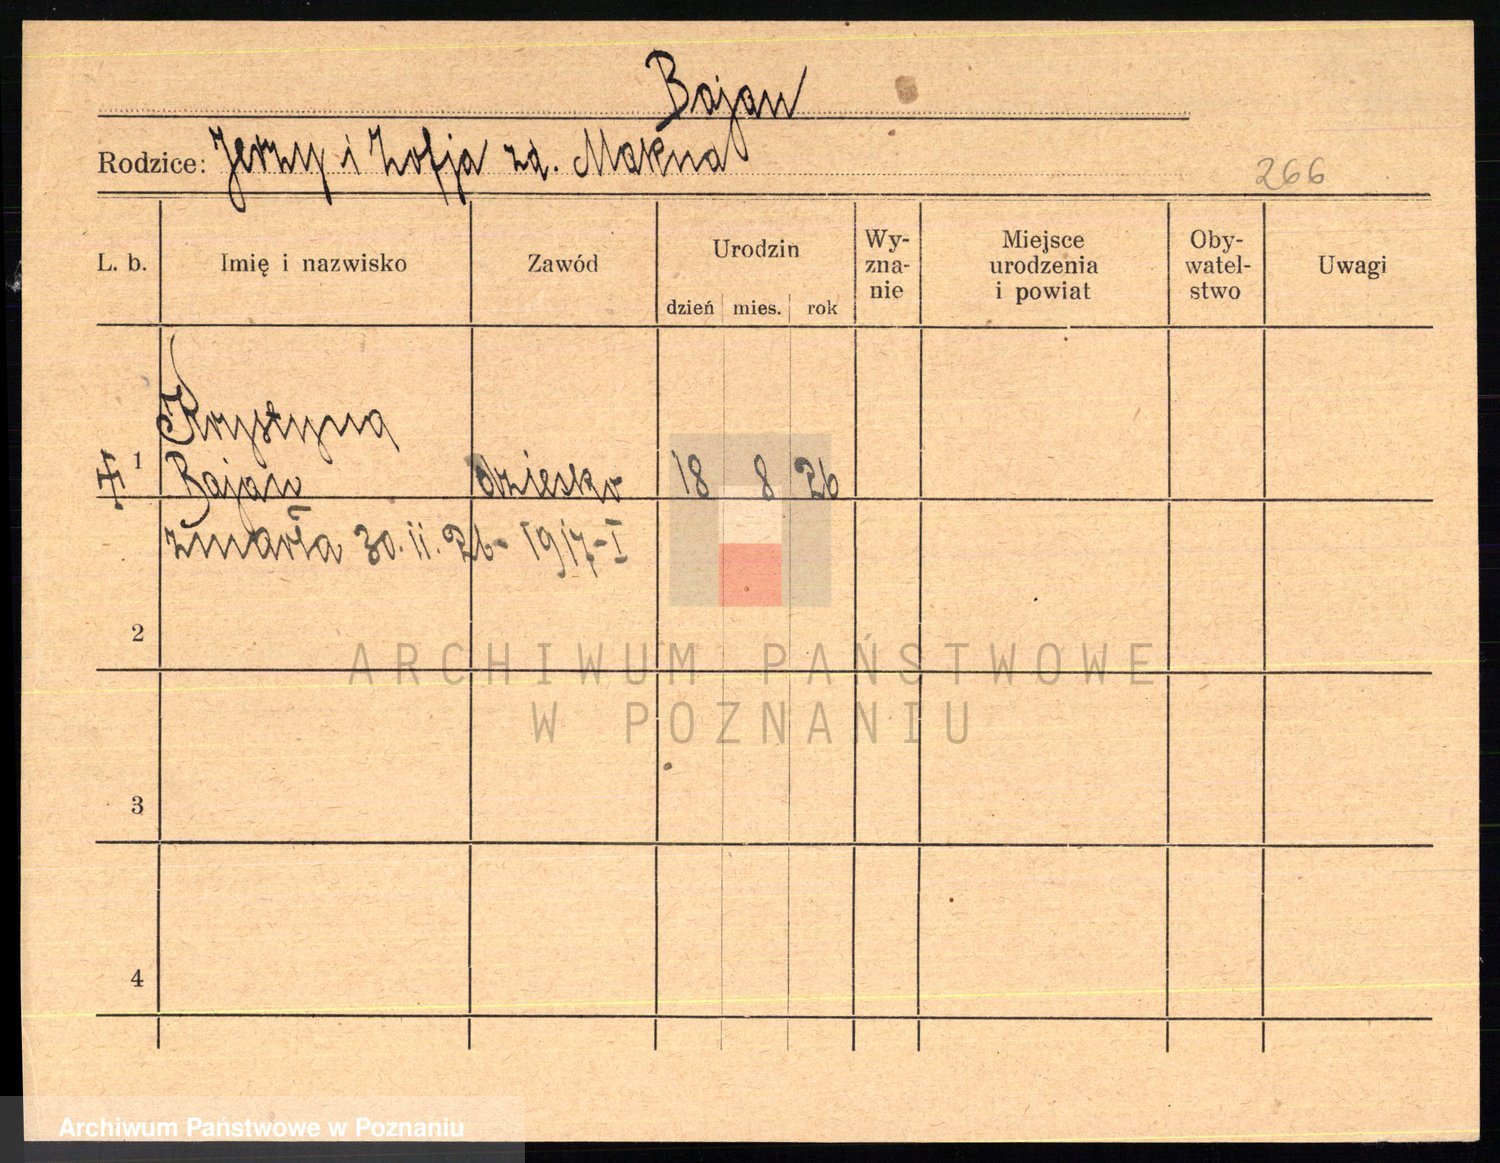 Bajan
Rodzice: Jerzy i Zofja zd. Makna
266
L. b. Imię i nazwisko Zawód Urodzin dzień mies. rok Wy-zna-nie Miejsce urodzenia i powiat Oby-watel-stwo Uwagi
Krystyna
1 Bajan dziesko 18 8 26
zmarła 30. 11. 26 - 1917-I
2
ARCHIWUM PAŃSTWOWE
W POZNANIU
3
4
Archiwum Państwowe w Poznaniu